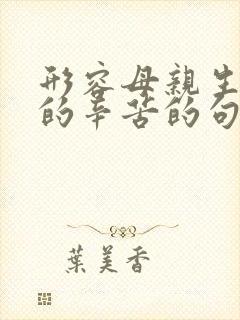 形容母親生
的辛苦的句
葉美香